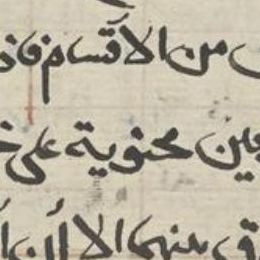 من الأقسام فاذ
عين محتوية على
بينهما الا أن